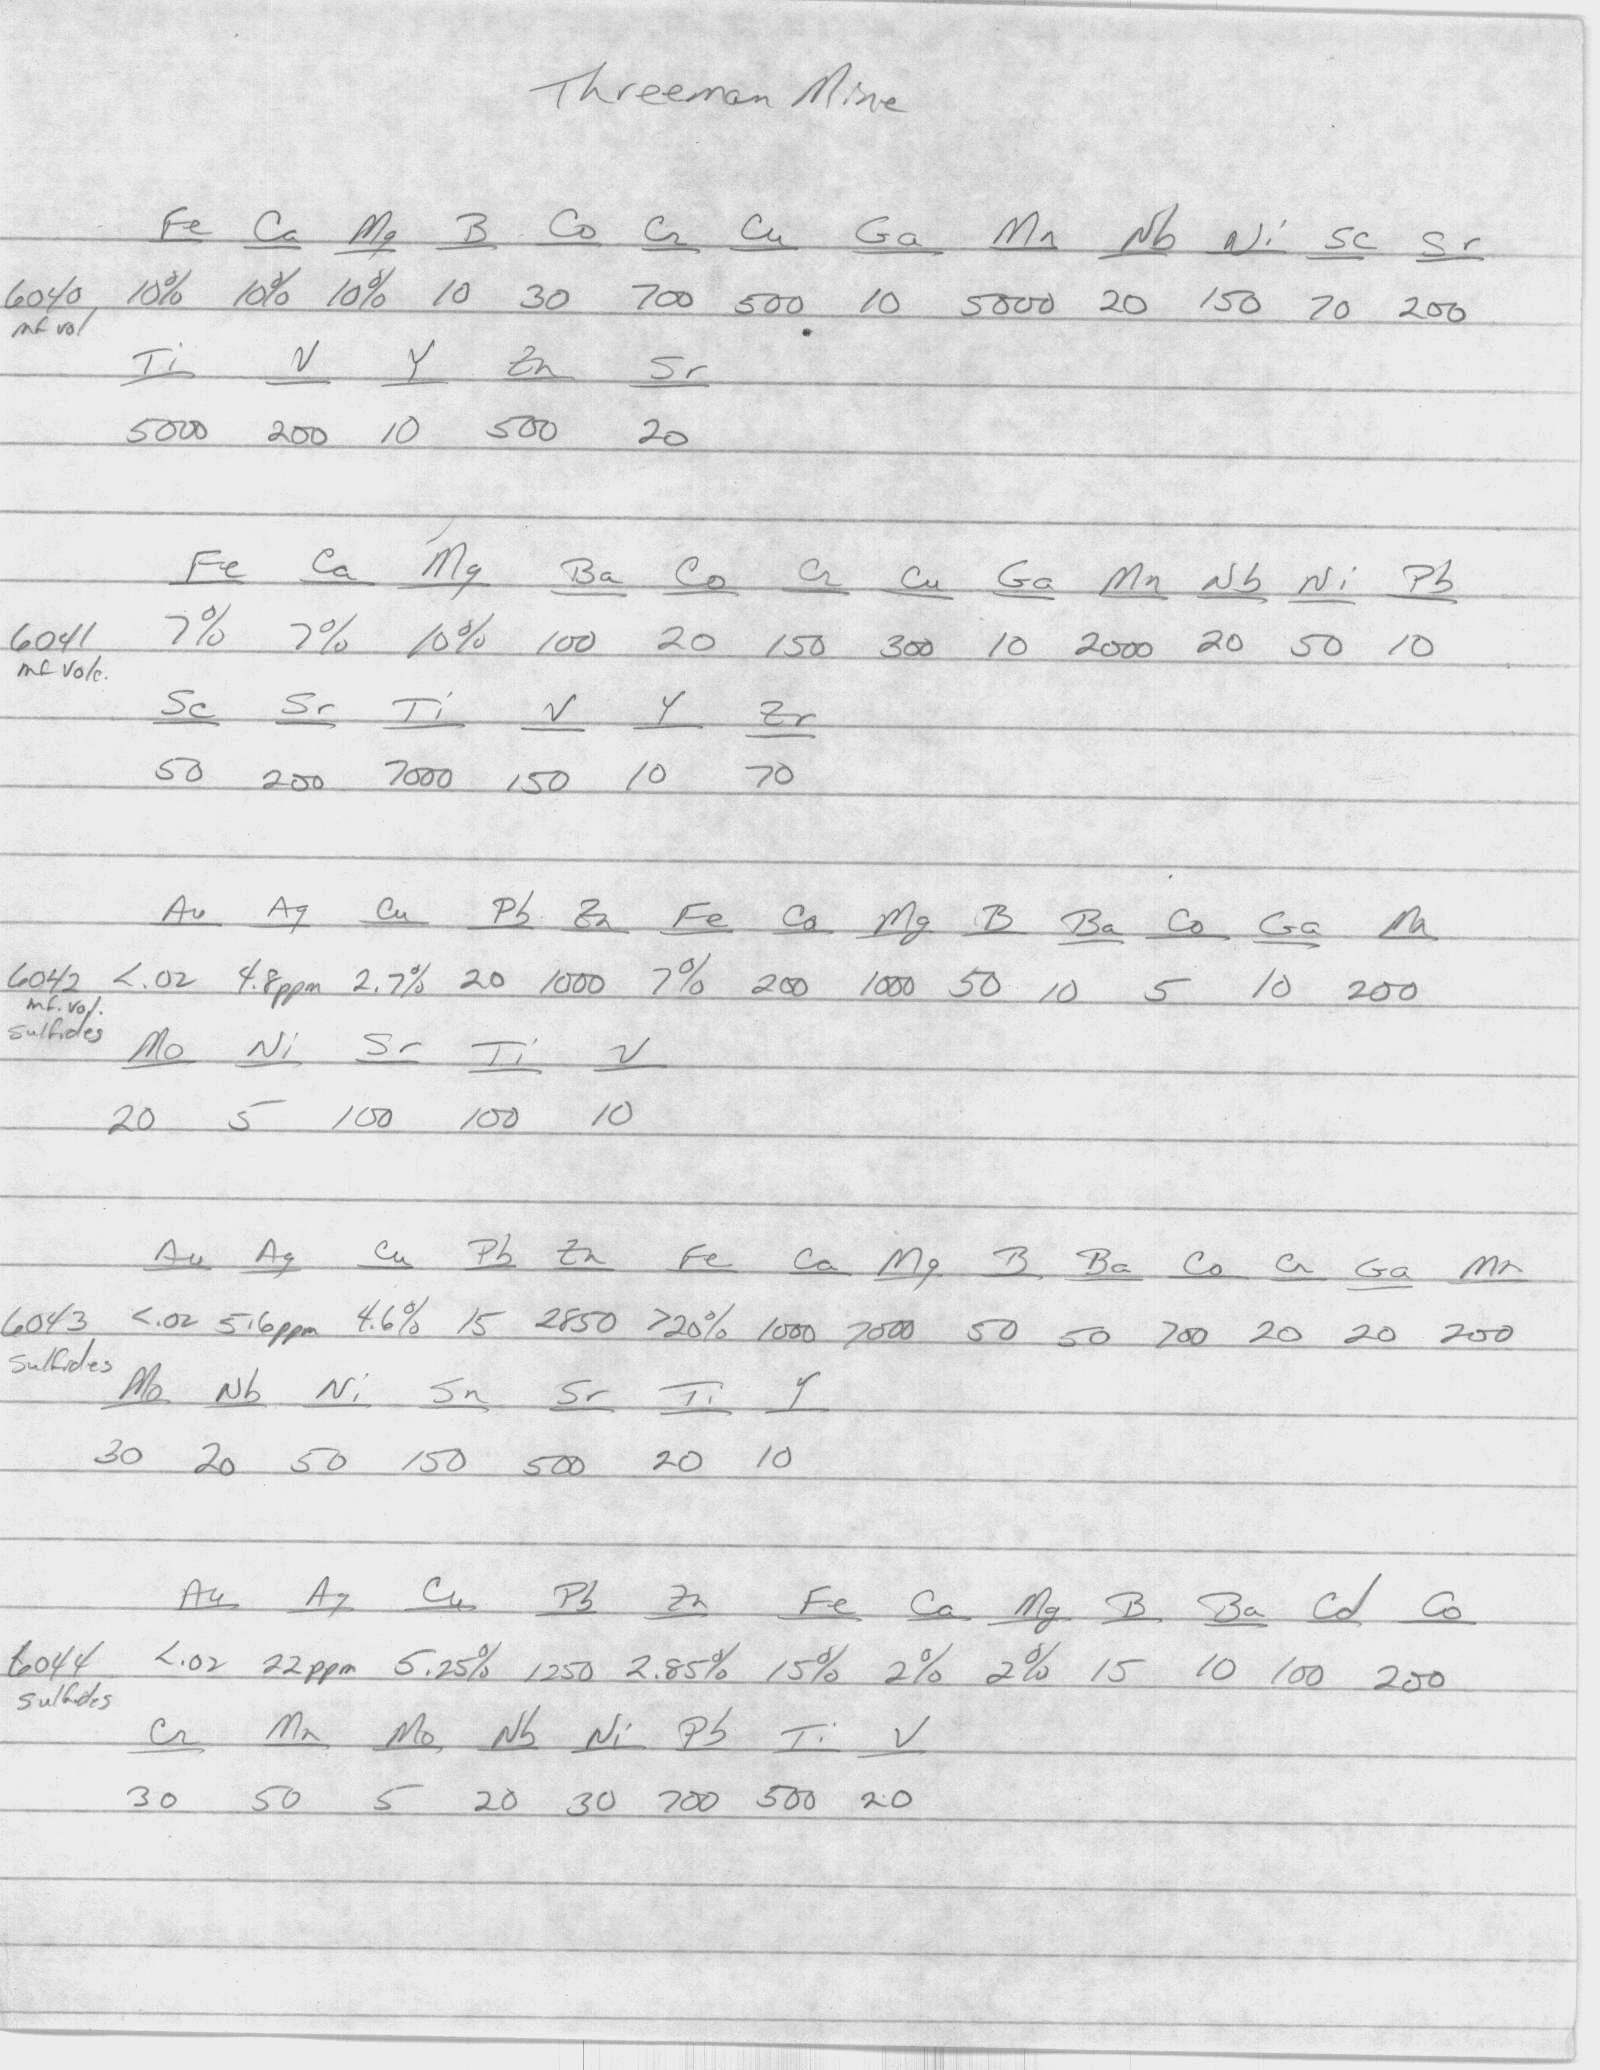 Threeman Mine
Fe Ca Mg B Co Cr Cu Ga Mn Nb Ni Sc Sr
6040 10% 10% 10% 10 30 700 500 10 5000 20 150 70 200
mf vol
Ti V Y Zn Sr
5000 200 10 500 20
Fe Ca Mg Ba Co Cr Cu Ga Mn Nb Ni Pb
6041 7% 7% 10% 100 20 150 300 10 2000 20 50 10
mf volc.
Sc Sr Ti V Y Zr
50 200 7000 150 10 70
Au Ag Cu Pb Zn Fe Ca Mg B Ba Co Ga Mn
6042 <.02 4.8ppm 2.7% 20 1000 7% 200 1000 50 10 5 10 200
mf. vol.
sulfides
Mo Ni Sr Ti V
20 5 100 100 10
Au Ag Cu Pb Zn Fe Ca Mg B Ba Co Cr Ga Mn
6043 <.02 5.6ppm 4.6% 15 2850 >20% 1000 7000 50 50 700 20 20 200
sulfides
Mo Nb Ni Sn Sr Ti Y
30 20 50 150 500 20 10
Au Ag Cu Pb Zn Fe Ca Mg B Ba Cd Co
6044 <.02 22ppm 5.25% 1250 2.85% 15% 2% 2% 15 10 100 200
sulfides
Cr Mn Mo Nb Ni Pb Ti V
30 50 5 20 30 700 500 20